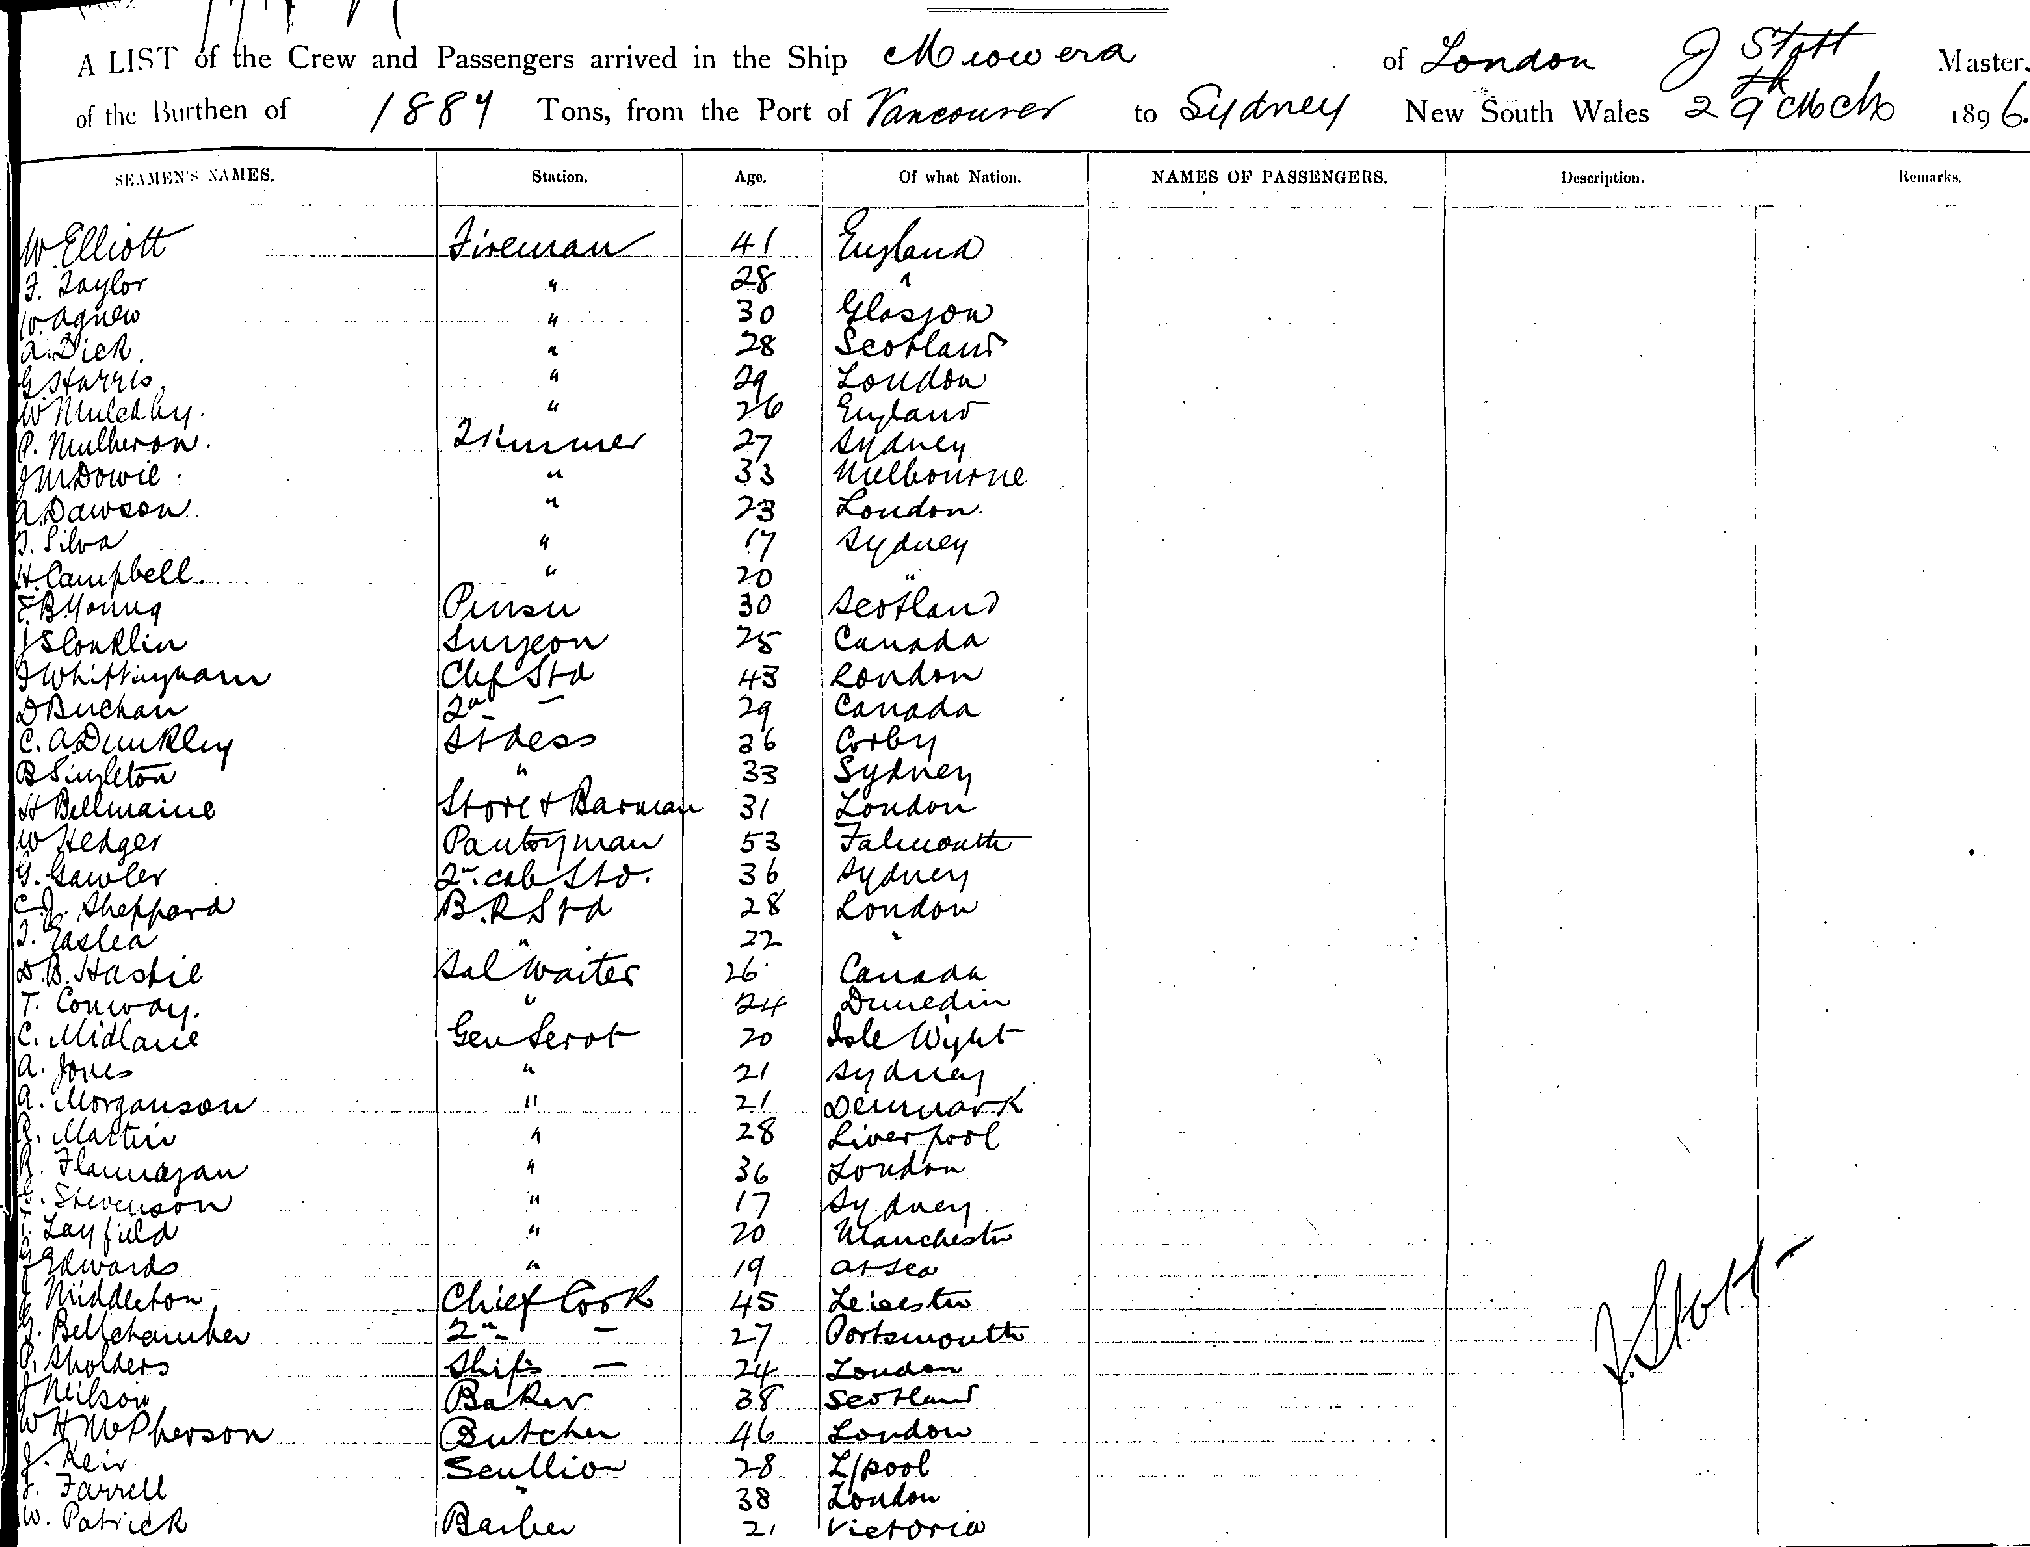 A LIST of the Crew and Passengers arrived in the Ship Miowera of London J Stott Master.
of the Burthen of 1889 Tons, from the Port of Vancouver to Sydney New South Wales 29th Mch 1896.
SEAMEN'S NAMES. Station. Age. Of what Nation. NAMES OF PASSENGERS. Description. Remarks.
W. Elliott Fireman 41 England
F. Taylor " 28 "
W. Agnew " 30 Glasgow
A. Dick " 28 Scotland
G Harris " 29 London
W Mulcahy. " 26 England
P. Mulheron. Trimmer 27 Sydney
J McDowie " 33 Melbourne
A Dawson " 23 London
J. Silva " 17 Sydney
H. Campbell. " 20 "
E B Young Purser 30 Scotland
J S Conklin Surgeon 25 Canada
J Whittingham Chf Std 43 London
D Buchan 2nd — 29 Canada
C. A Dunkley Stdess 36 Corby
B Singleton " 33 Sydney
H Bellmaine Store & Barman 31 London
W Hedger Pantryman 53 Falmouth
G. Gawler 2n. cab Std. 36 Sydney
C J. Sheppard B. R Std 28 London
T. Easlea " 22 "
D. B. Hastie Sal Waiter 26 Canada
T. Conway. " 24 Dunedin
C. Midlane Gen Servt 20 Isle Wight
A. Jones " 21 Sydney
A. Morganson " 21 Denmark
Martin " 28 Liverpool
Flannagan " 36 London
Stevenson " 17 Sydney
Layfield " 20 Manchester
J Edwards " 19 at sea
Middleton Chief Cook 45 Leicester
G. Bellchamber 2nd — 27 Portsmouth
P. Sholders Ships — 24 London
J Neilson Baker 38 Scotland
W H McPherson Butcher 46 London
J. Keir Scullion 28 L/pool
J. Farrell " 38 London
W. Patrick Barber 21 Victoria
J. Stott